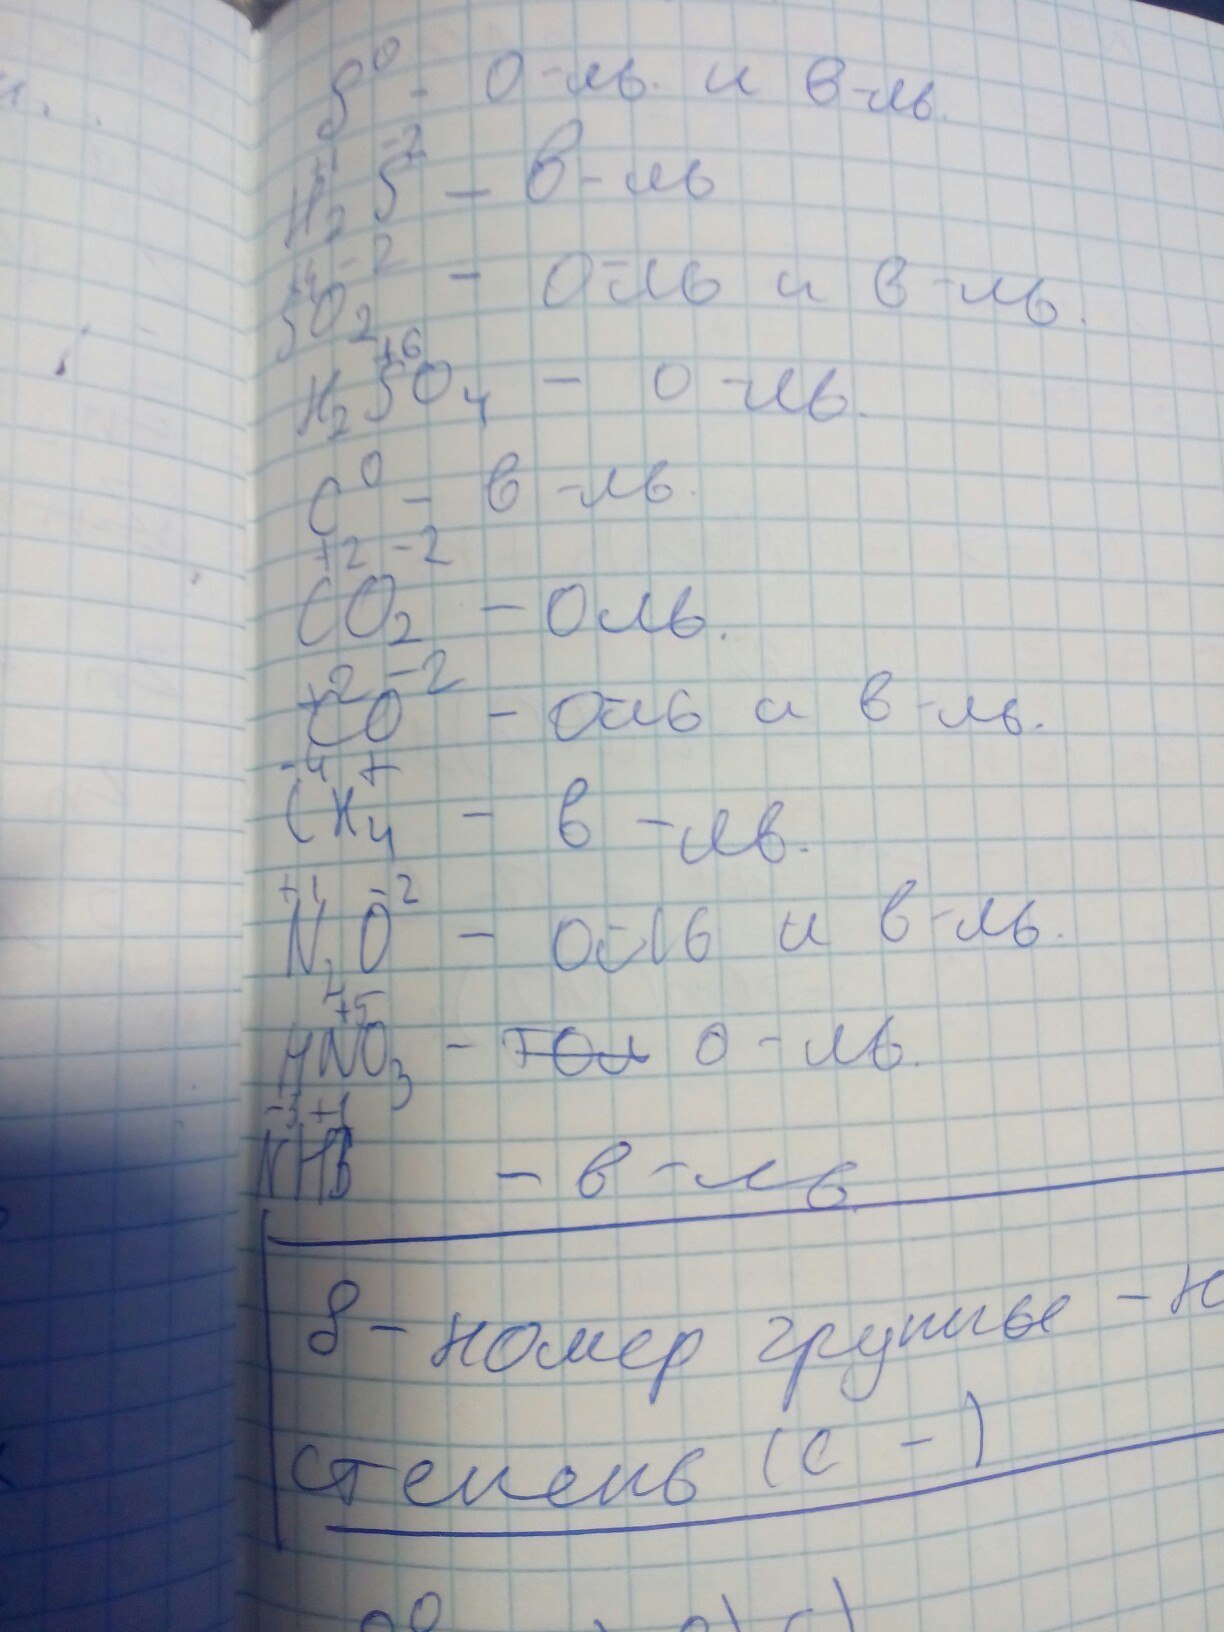 S⁰ - о-ль. и в-ль.
H₂⁺¹S⁻² - в-ль
S⁺⁴O₂⁻² - о-ль и в-ль.
H₂S⁺⁶O₄ - о-ль.
C⁰ - в-ль.
C⁺²O₂⁻² - Оль.
C⁺²O⁻² - о-ль и в-ль.
C⁻⁴H₄⁺ - в-ль.
N₂⁺¹O⁻² - о-ль и в-ль.
HN⁺⁵O₃ - о-ль.
N⁻³H₃⁺¹ - в-ль
8 - номер группы -
степень (с -)